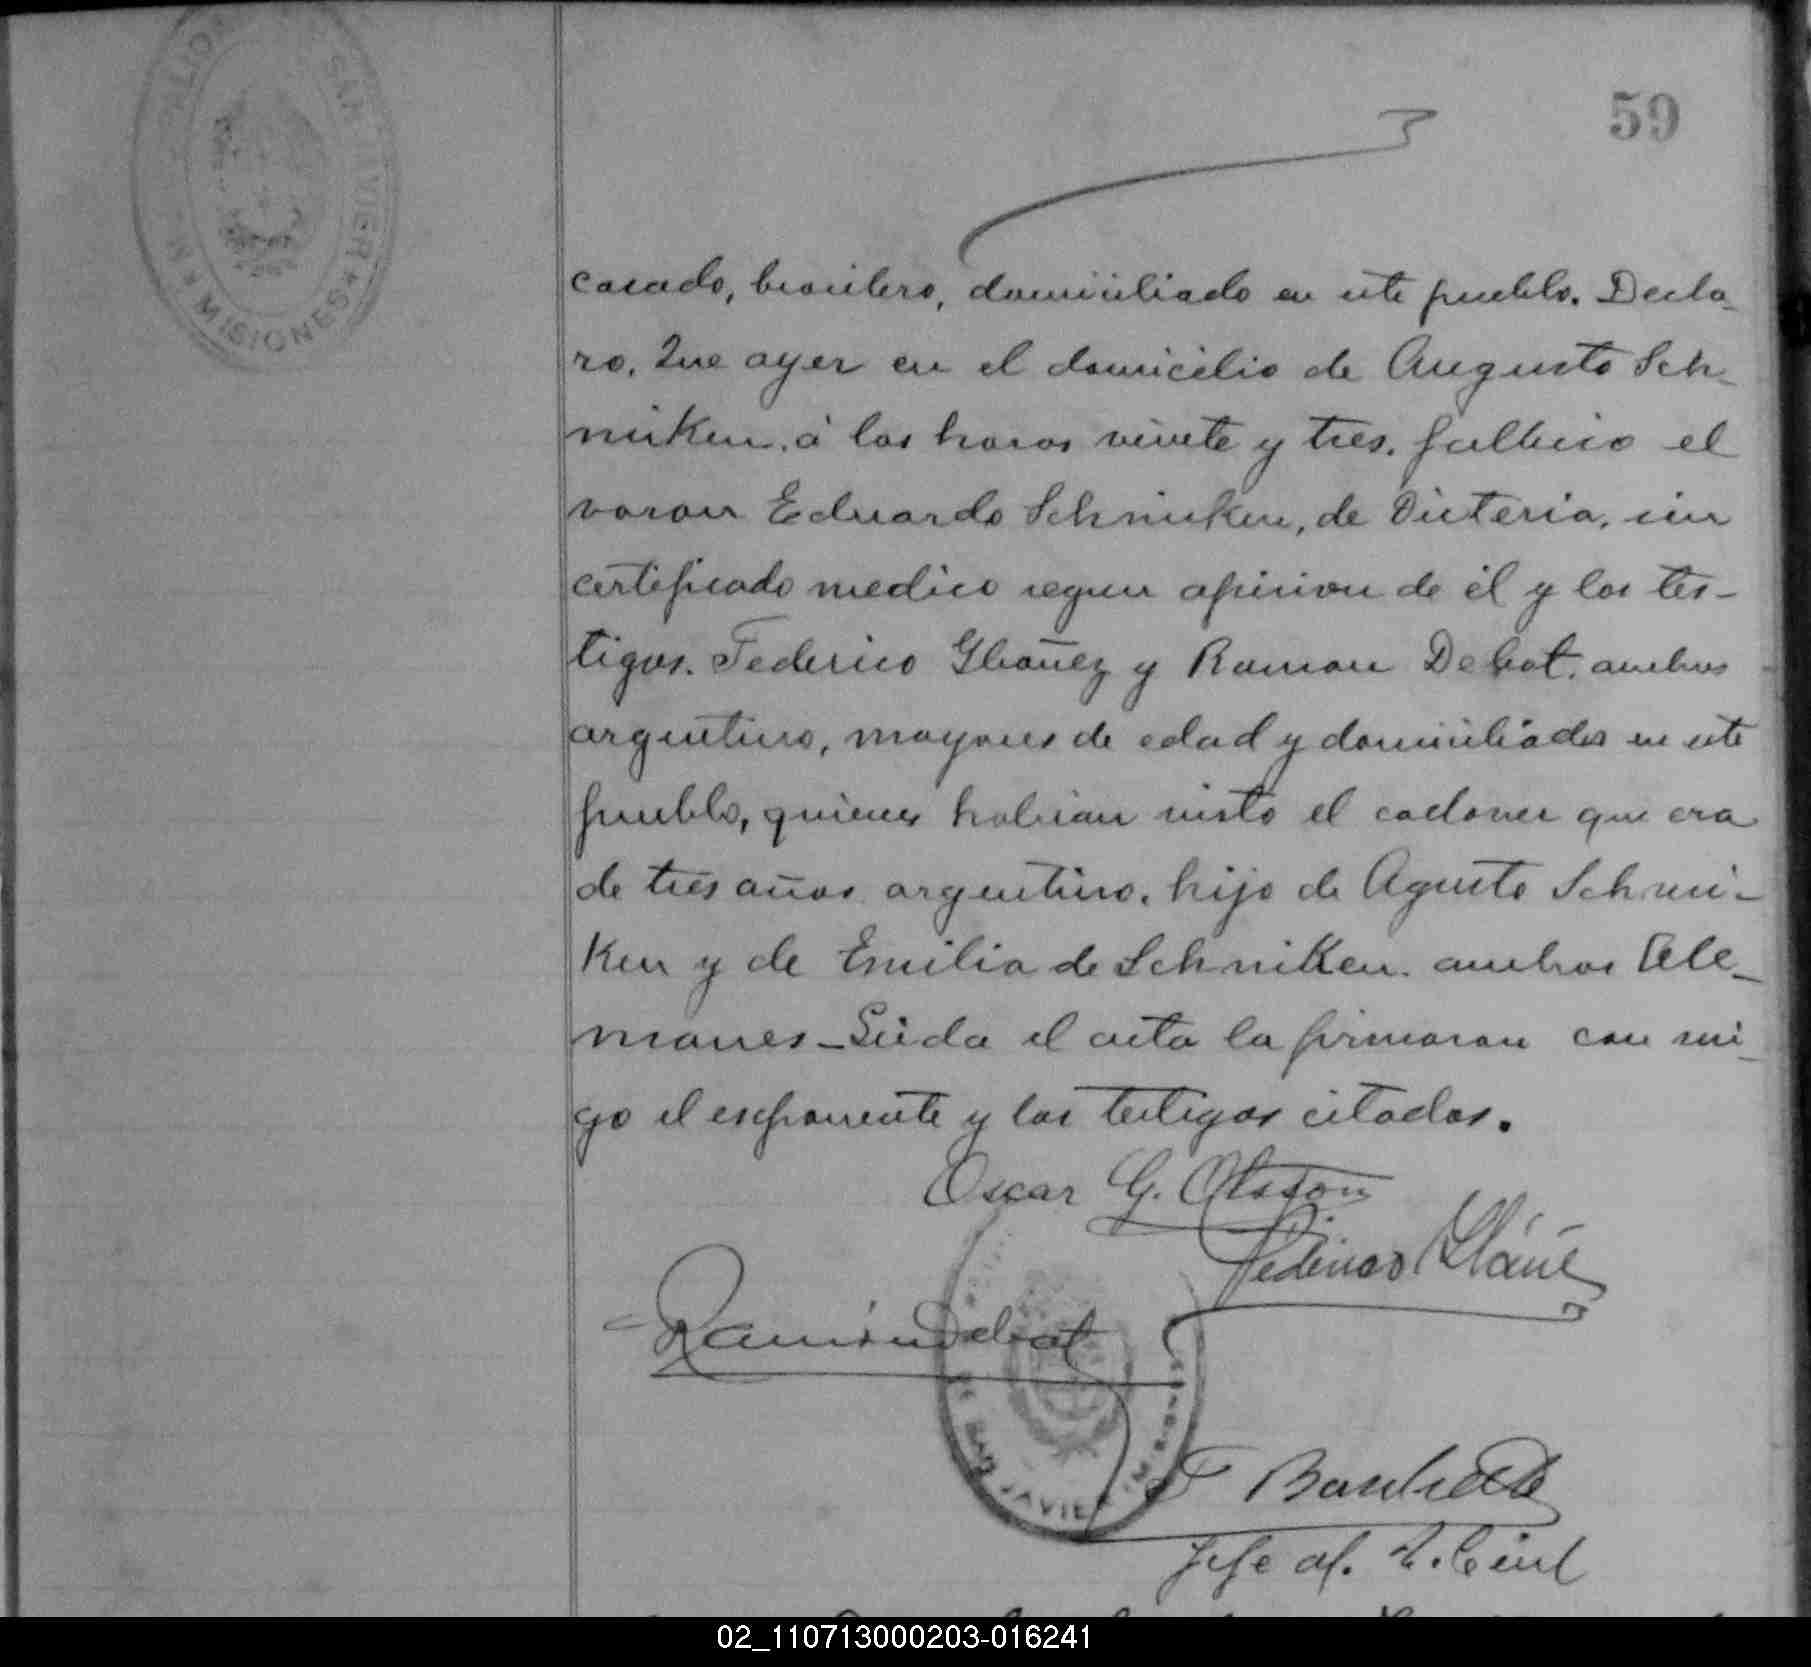 59
SAN JAVIER
MISIONES
casado, brasilero, domiciliado en este pueblo. Decla-
ro, Que ayer en el domicilio de Augusto Sch-
niken. á las horas veinte y tres, fallecio el
varon Eduardo Schniken, de Dicteria, sin
certificado medico segun opinion de él y los tes-
tigos. Federico Ybañez y Ramon Debat, ambos
argentinos, mayores de edad y domiciliados en este
pueblo, quienes habian visto el cadaver que era
de tres años argentino, hijo de Agusto Schni-
ken y de Emilia de Schniken. ambos Ale-
manes - Leida el acta la firmaron con mi
go el esponente y los testigos citados.
Oscar G. Olsson
Federico Ybáñe
Ramón Debat
DE SAN JAVIER
Jefe of. R. Civil
02_110713000203-016241